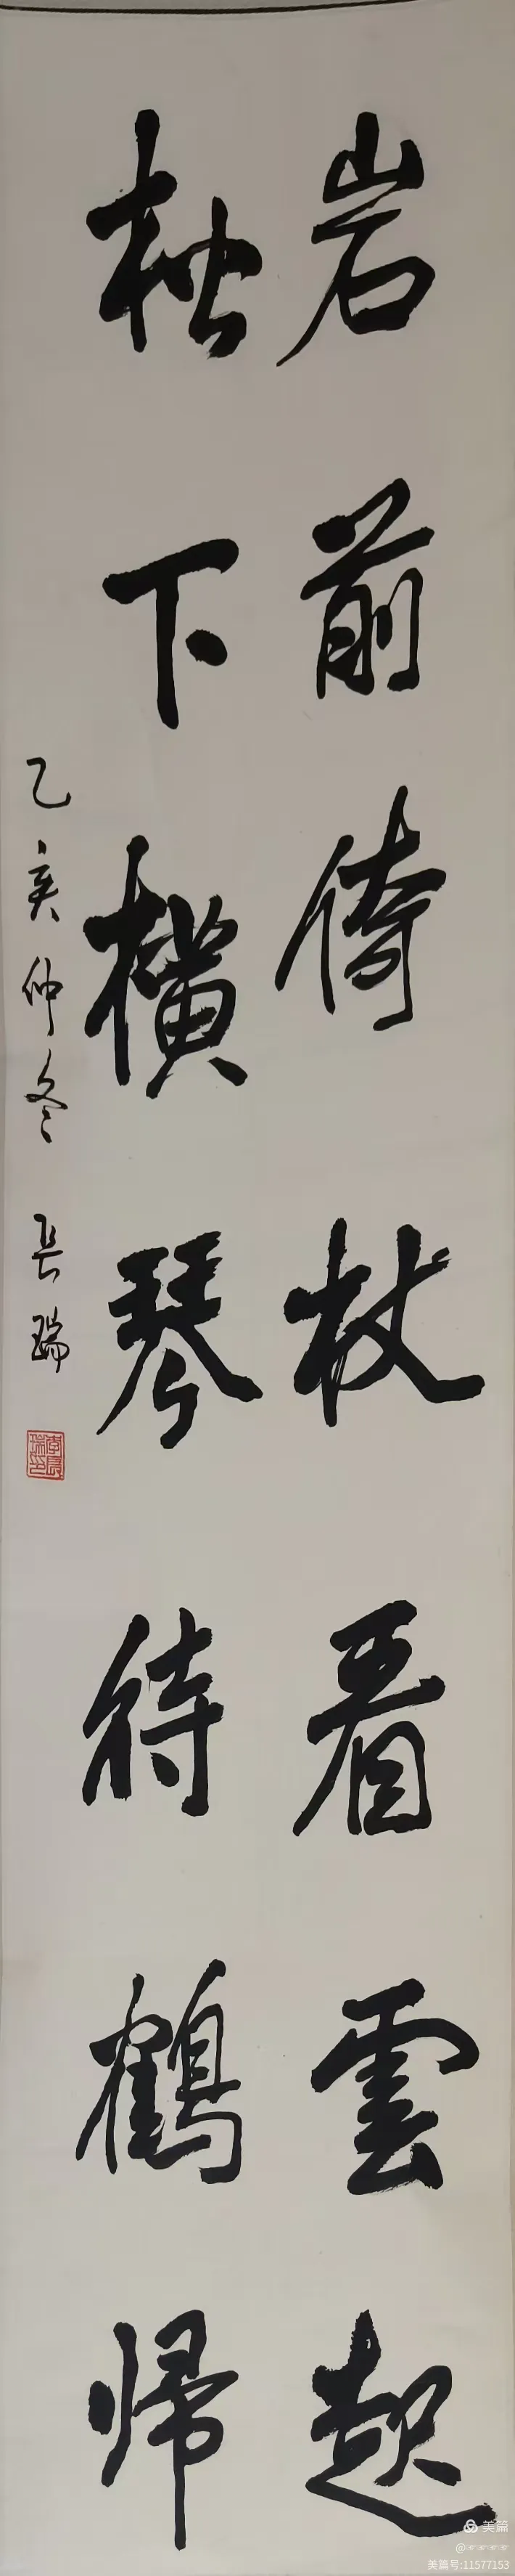 岩前倚杖看雲起
松下橫琴待鶴歸
乙亥仲冬 長瑞
美篇
美篇号:11577153